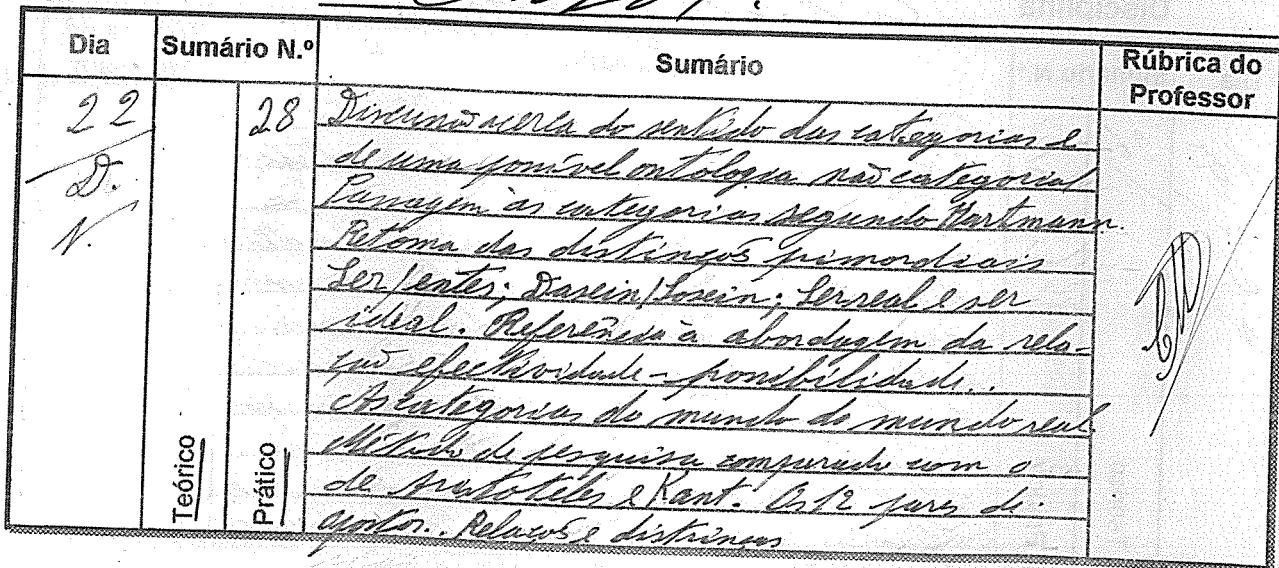 Dia Sumário N.º Sumário Rúbrica do Professor
22
D.
N.
Teórico
Prático
28
Discussão acerca do sentido das categorias e
de uma possível ontologia não categorial
Passagem às categorias segundo Hartmann.
Retoma das distinções primordiais
Ser/entes; Dasein/Sosein; Ser real e ser
ideal. Referência à abordagem da rela-
ção efectividade - possibilidade..
As categorias do mundo do mundo real
Método de pesquisa comparado com o
de Aristóteles e Kant. Os 12 pares de
opostos. Relações e distinções